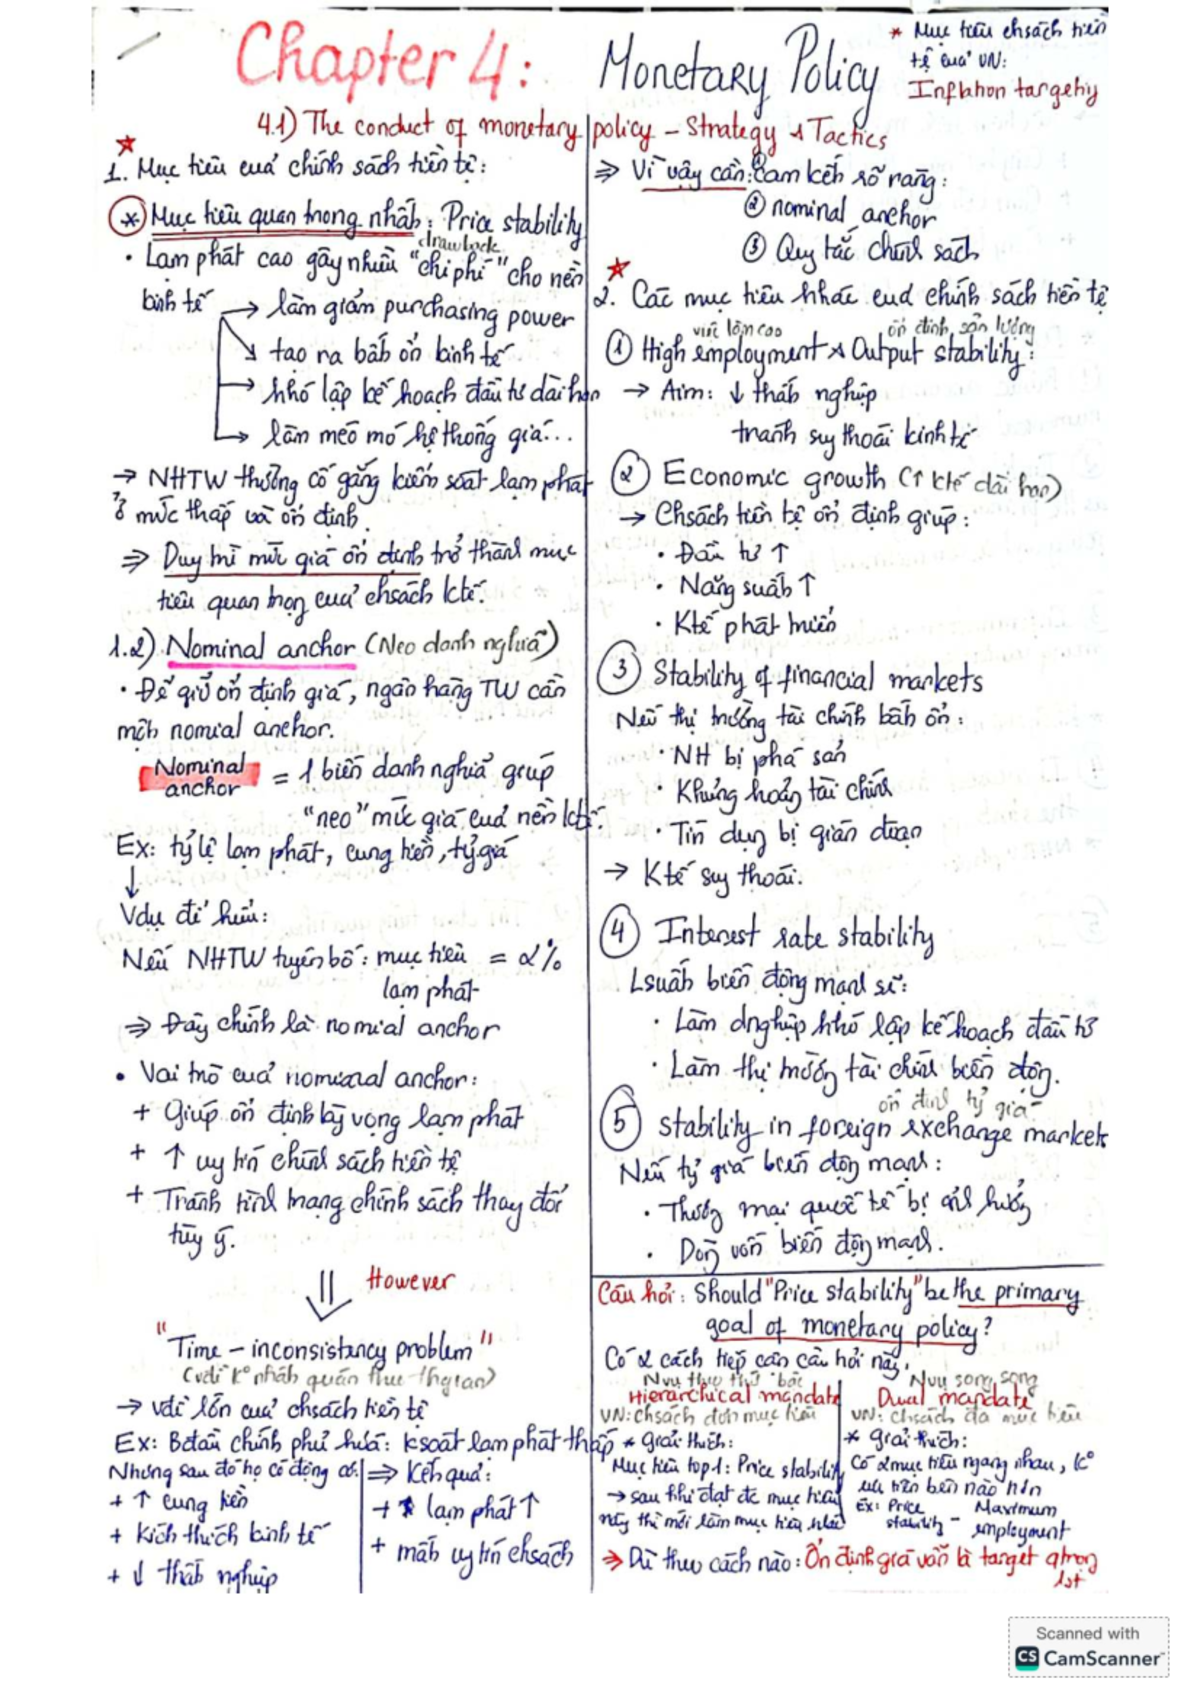 Chapter 4: Monetary Policy
* Mục tiêu chsách tiền
tệ của VN:
Inflation targeting
4.1) The conduct of monetary policy - Strategy & Tactics
1. Mục tiêu của chính sách tiền tệ:
* Mục tiêu quan trọng nhất: Price stability
drawback
• Lạm phát cao gây nhiều "chi phí" cho nền
kinh tế → làm giảm purchasing power
↘ tạo ra bất ổn kinh tế
→ khó lập kế hoạch đầu tư dài hạn
→ làm méo mó hệ thống giá...
→ NHTW thường cố gắng kiểm soát lạm phát
ở mức thấp và ổn định.
⇒ Duy trì mức giá ổn định trở thành mục
tiêu quan trọng của chsách ktế.
1.2) Nominal anchor (Neo danh nghĩa)
• Để giữ ổn định giá, ngân hàng TW cần
một nomial anchor.
Nominal anchor = 1 biến danh nghĩa giúp
"neo" mức giá của nền ktế.
Ex: tỷ lệ lạm phát, cung tiền, tỷ giá
↓
Vdụ dễ hiểu:
Nếu NHTW tuyên bố: mục tiêu = 2%
lạm phát
⇒ Đây chính là nomial anchor
• Vai trò của nominal anchor:
+ Giúp ổn định kỳ vọng lạm phát
+ ↑ uy tín chính sách tiền tệ
+ Tránh tình trạng chính sách thay đổi
tùy ý.
⇓ However
"Time - inconsistency problem"
(vđề k° nhất quán theo thgian)
→ vđề lớn của chsách tiền tệ
Ex: Bđầu chính phủ hứa: ksoát lạm phát thấp
Nhưng sau đó họ có động cơ:
+ ↑ cung tiền
+ Kích thích kinh tế
+ ↓ thất nghiệp
⇒ Kết quả:
+ lạm phát ↑
+ mất uy tín chsách
⇒ Vì vậy cần: ① Cam kết rõ ràng:
② nominal anchor
③ Quy tắc chính sách
2. Các mục tiêu khác của chính sách tiền tệ
việc làm cao ổn định sản lượng
① High employment & Output stability:
→ Aim: ↓ thất nghiệp
tránh suy thoái kinh tế
② Economic growth (↑ ktế dài hạn)
→ Chsách tiền tệ ổn định giúp:
• Đầu tư ↑
• Năng suất ↑
• Ktế phát triển
③ Stability of financial markets
Nếu thị trường tài chính bất ổn:
• NH bị phá sản
• Khủng hoảng tài chính
• Tín dụng bị gián đoạn
→ Ktế suy thoái.
④ Interest rate stability
Lsuất biến động mạnh sẽ:
• Làm dnghiệp khó lập kế hoạch đầu tư
• Làm thị trường tài chính biến động.
ổn định tỷ giá
⑤ stability in foreign exchange markets
Nếu tỷ giá biến động mạnh:
• Thương mại quốc tế bị ảnh hưởng
• Dòng vốn biến động mạnh.
Câu hỏi: Should "Price stability" be the primary
goal of monetary policy?
Có 2 cách tiếp cận câu hỏi này.
Nvụ theo thứ bậc
Hierarchical mandate
VN: chsách đơn mục tiêu
* Giải thích:
Mục tiêu top1: Price stability
→ sau khi đạt đc mục tiêu
này thì mới làm mục tiêu khác
Nvụ song song
Dual mandate
VN: chsách đa mục tiêu
* Giải thích:
Có 2 mục tiêu ngang nhau, k°
ưu tiên bên nào hơn
Ex: Price stability - Maximum employment
⇒ Dù theo cách nào: Ổn định giá vẫn là target qtrọng
1st
Scanned with
CS CamScanner